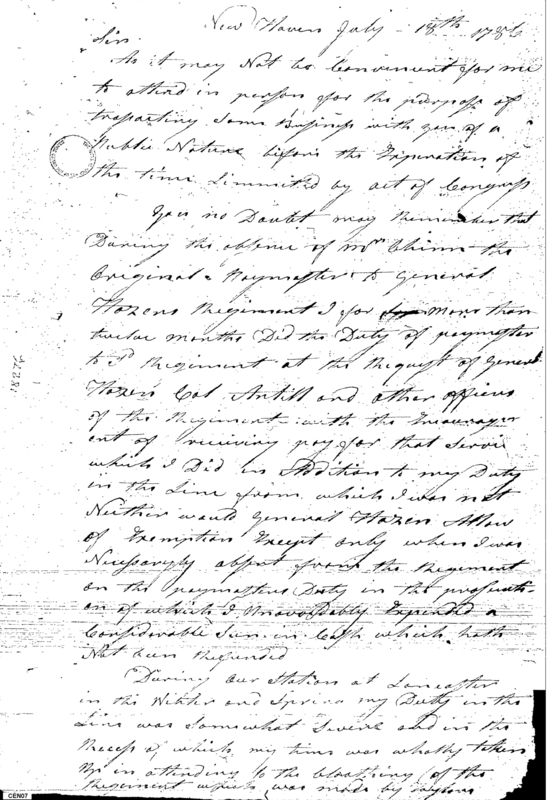 New Haven July 18th 1786
Sir
As it may Not be Convenient for me
to attend in person for the purpose of
trasacting Some Business with you of a
Public Nature before the Experation of
the time Limmited by act of Congress
You no Doubt may Remember that
During the absence of Mr Chinn the
Original Paymaster to General
Hazens Regiment I for More than
twelve months Did the Duty of paymaster
to sd Regiment at the Request of General
Hazen Col Antill and other officers
of the Regiment with the Encouragem
ent of receiving pay for that Servi
which I Did in Addition to my Duty
in the Line from which I was not
Neither would General Hazen Allow
of Exemption Except only when I was
Necessaryly absent from the Regiment
on the paymasters Duty in the prosecuti
on of which I Unavoidably Expended a
Considerable Sum in Cash which hath
Not been Refunded
During our Station at Lancaster
in the Winter and Spring my Duty in the
Line was Somewhat Severe and in the
Recess of which my time was wholly taken
up in attending to the Cloathing of the
Regiment which was made by
CEN07